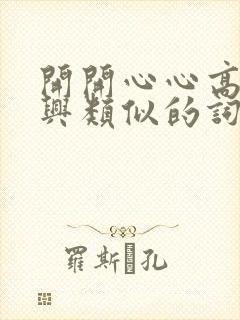 開開心心高
興類似的詞
羅斯 孔